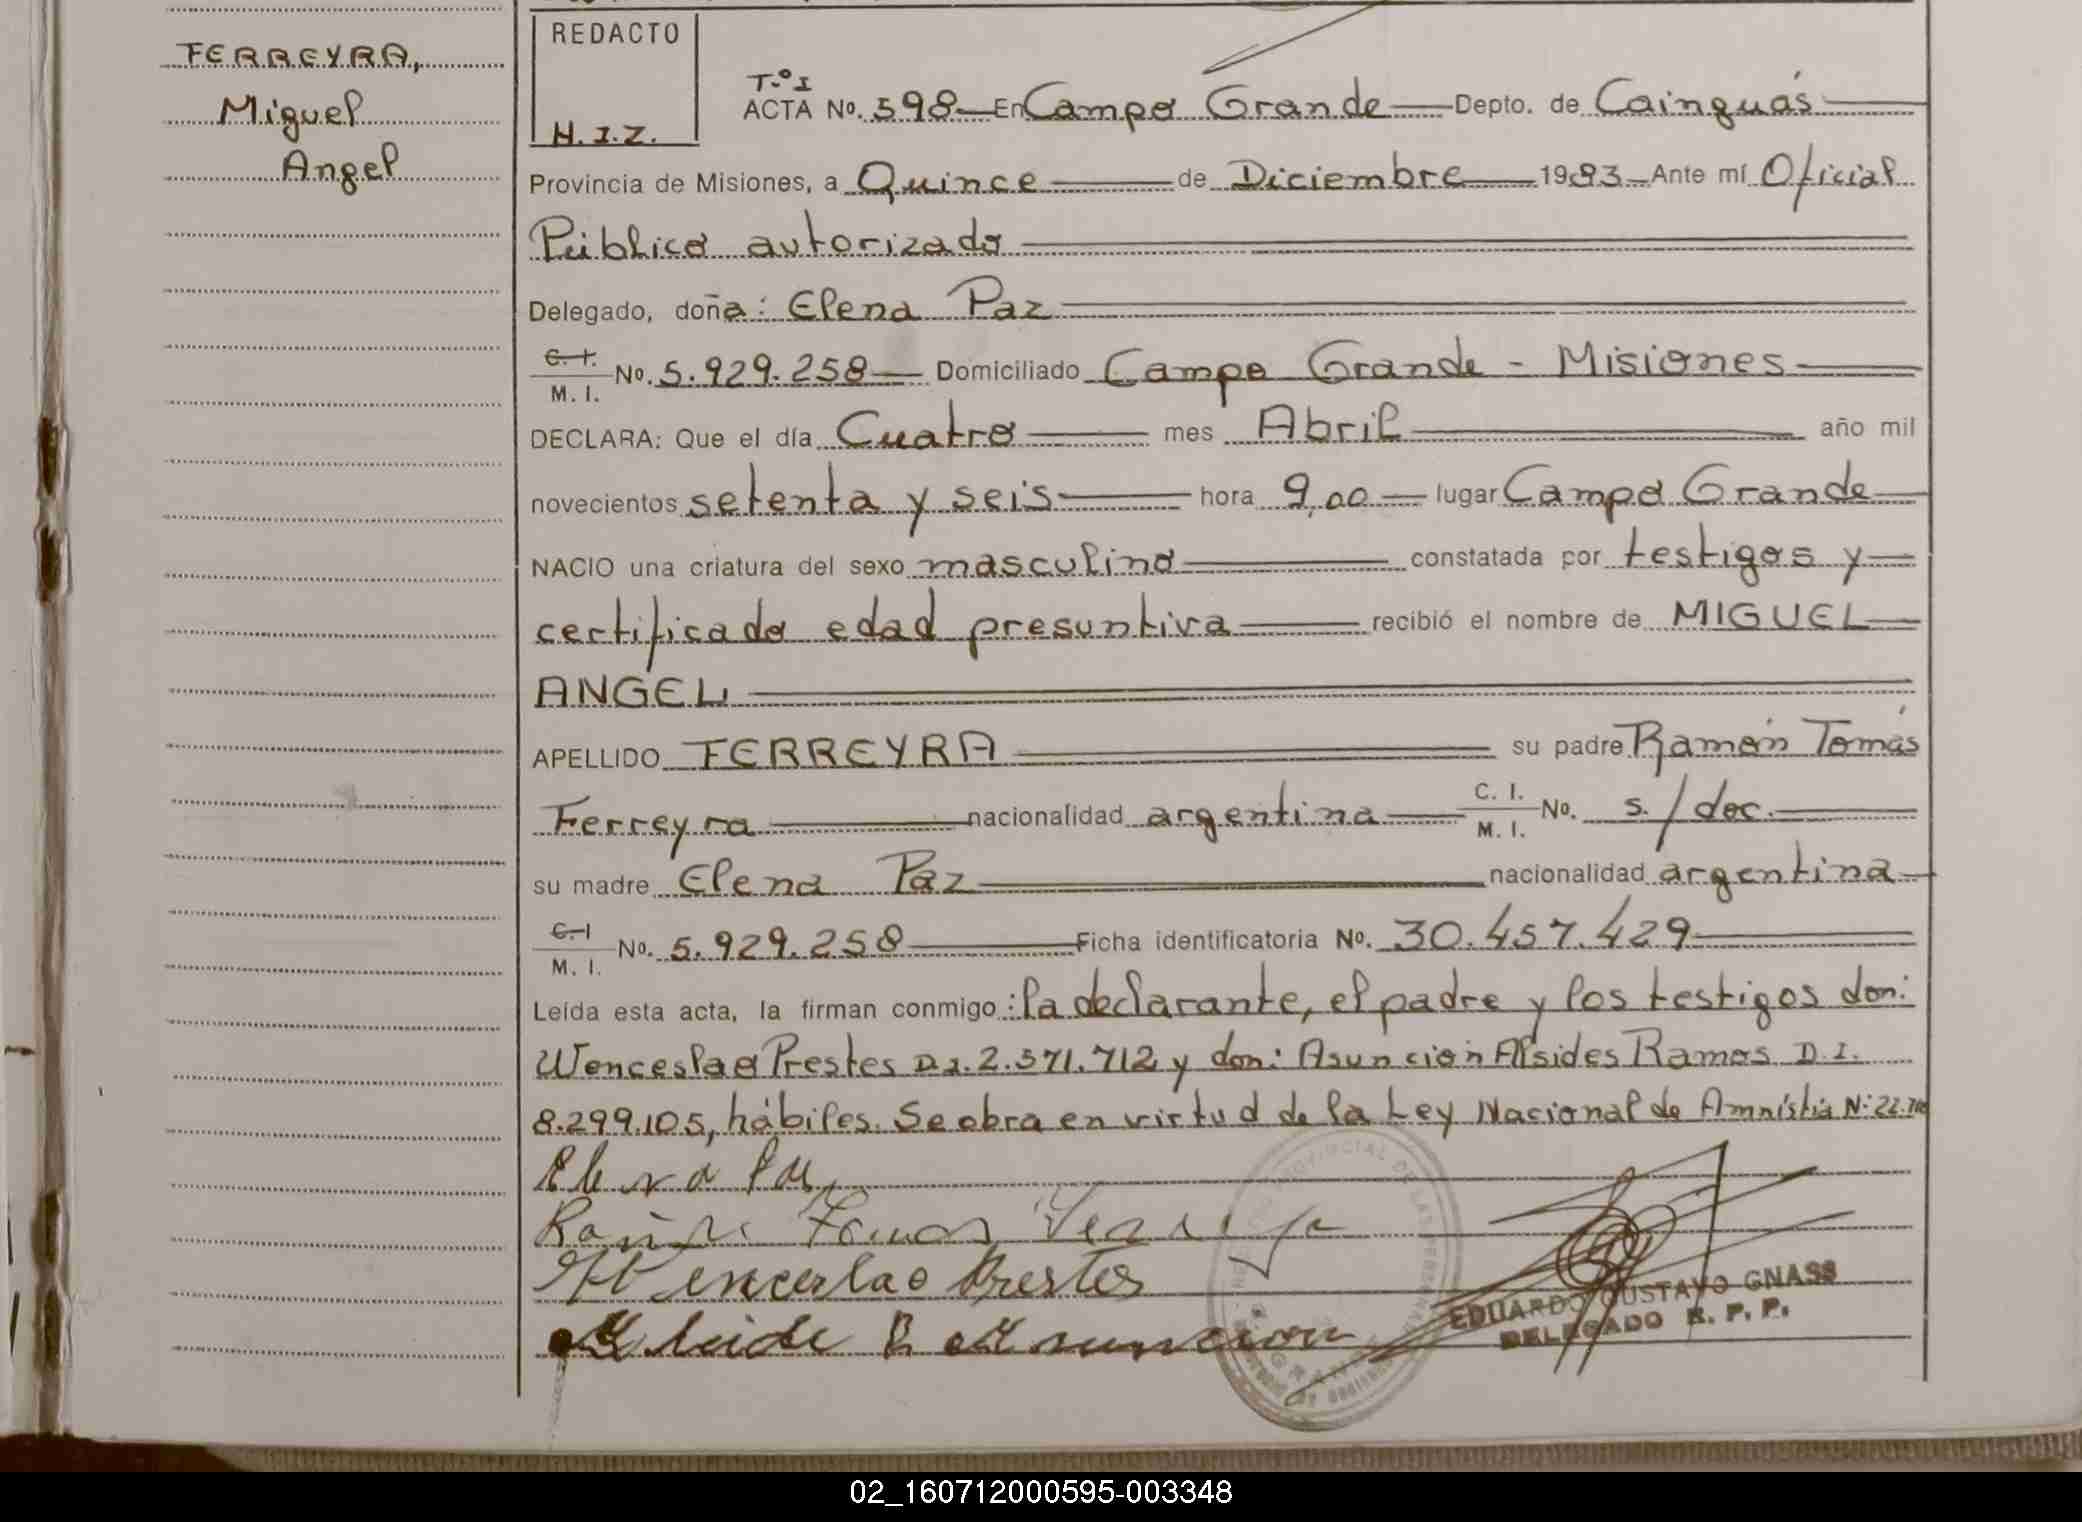 FERREYRA,
Miguel
Angel
REDACTO
H.I.Z.
T.º I
ACTA No. 598 En Campo Grande Depto. de Cainguás
Provincia de Misiones, a Quince de Diciembre 1983 Ante mí Oficial
Público autorizado
Delegado, doña: Elena Paz
C. I.
M. I.
No. 5.929.258 Domiciliado Campo Grande - Misiones
DECLARA: Que el día Cuatro mes Abril año mil
novecientos setenta y seis hora 9,00 lugar Campo Grande
NACIO una criatura del sexo masculino constatada por testigos y
certificado edad presuntiva recibió el nombre de MIGUEL
ANGEL
APELLIDO FERREYRA su padre Ramón Tomás
Ferreyra nacionalidad argentina C. I. M. I. No. s./doc.
su madre Elena Paz nacionalidad argentina
C. I
M. I.
No. 5.929.258 Ficha identificatoria No. 30.457.429
Leída esta acta, la firman conmigo: la declarante, el padre y los testigos don:
Wenceslao Prestes D.I. 2.371.712 y don: Asunción Alsides Ramos D.I.
8.299.105, hábiles. Se obra en virtud de la Ley Nacional de Amnistía N: 22.
Elena Paz
Wenceslao Prestes
EDUARDO GUSTAVO GNASS
DELEGADO R. P. P.
02_160712000595-003348